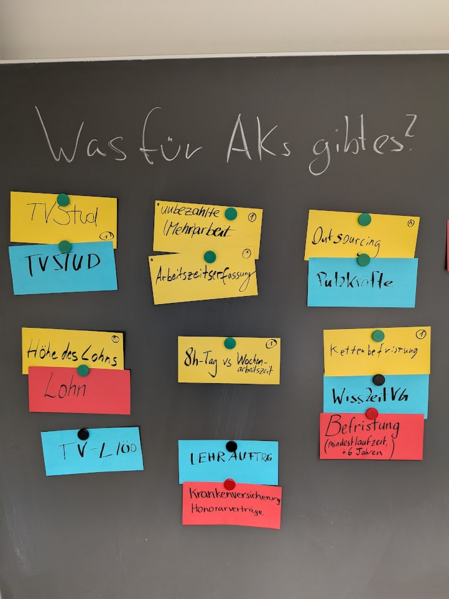 Was für AKs gibt es?
TVStud
TVSTUD
unbezahlte
(Mehr)arbeit
Arbeitszeitserfassung
Outsourcing
Putzkräfte
Höhe des Lohns
Lohn
8h-Tag vs Wochen-
arbeitszeit
Kettenbefristung
WissZeitVG
Befristung
(mindestlaufzeit,
+6 Jahren)
TV-L/öD
LEHRAUFTRG
Krankenversicherung
Honorarverträge